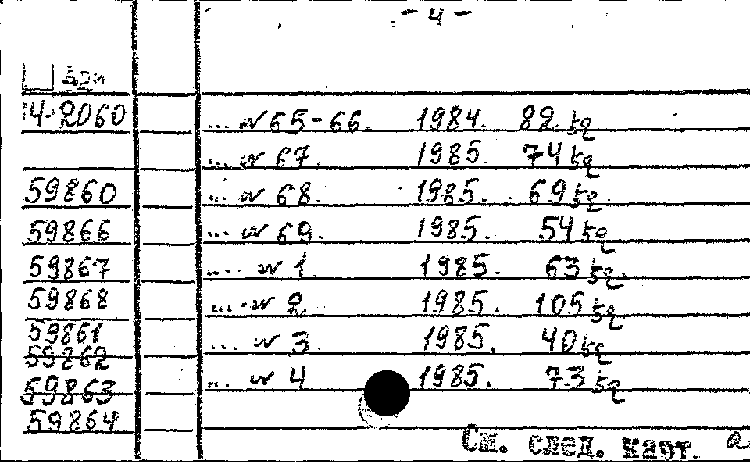 - 4 -
4-2060 ... № 65-66. 1984. 82
... № 67. 1985. 74
59860 ... № 68. 1985. 69
59866 ... № 69. 1985. 54
59867 ... № 1 1985. 63
59868 ... № 2 1985. 105
59861 ... № 3 1985. 40
59862
59863 ... № 4 1985. 73
59864
См. след. карт.